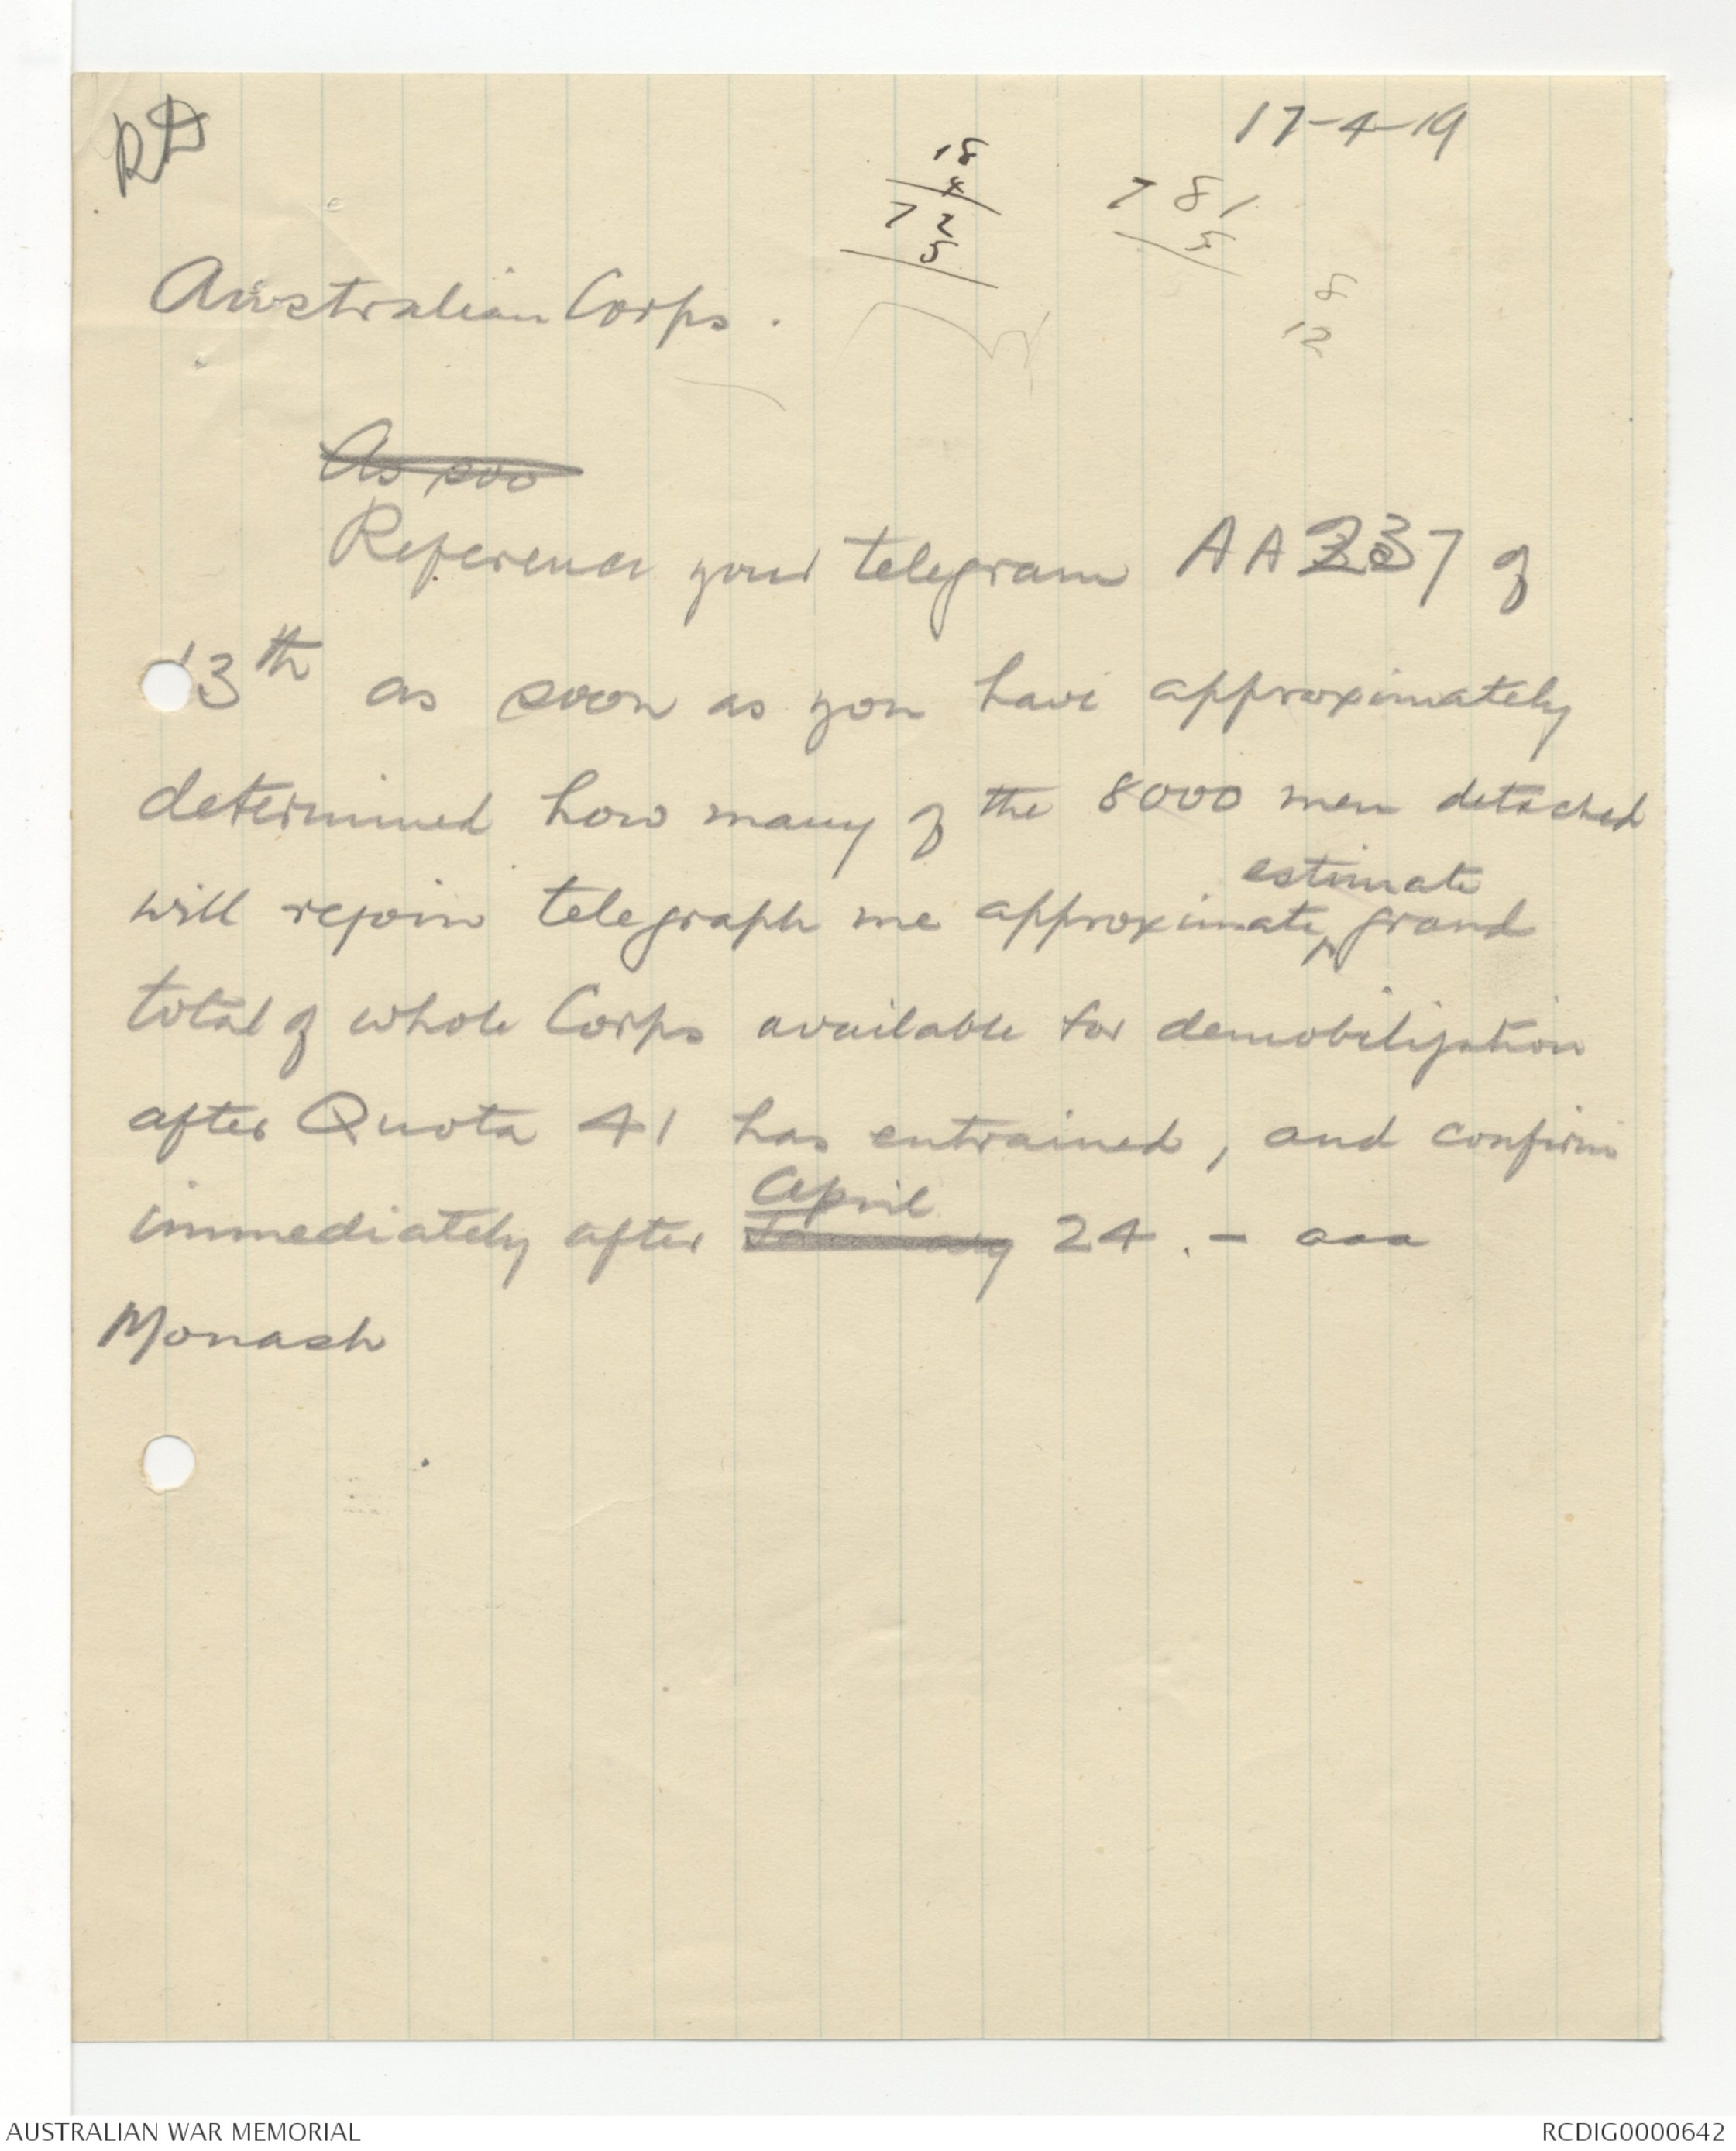 RD
17-4-19
18
4
72
5
781
5
8
12
Australian Corps.
As soo
Reference your telegram AA 237 of
13th as soon as you have approximately
determined how many of the 8000 men detached
estimate
will rejoin telegraph me approximate grand
total of whole Corps available for demobilization
after Quota 41 has entrained, and confirm
April
immediately after January 24. - aaa
Monash
AUSTRALIAN WAR MEMORIAL
RCDIG0000642